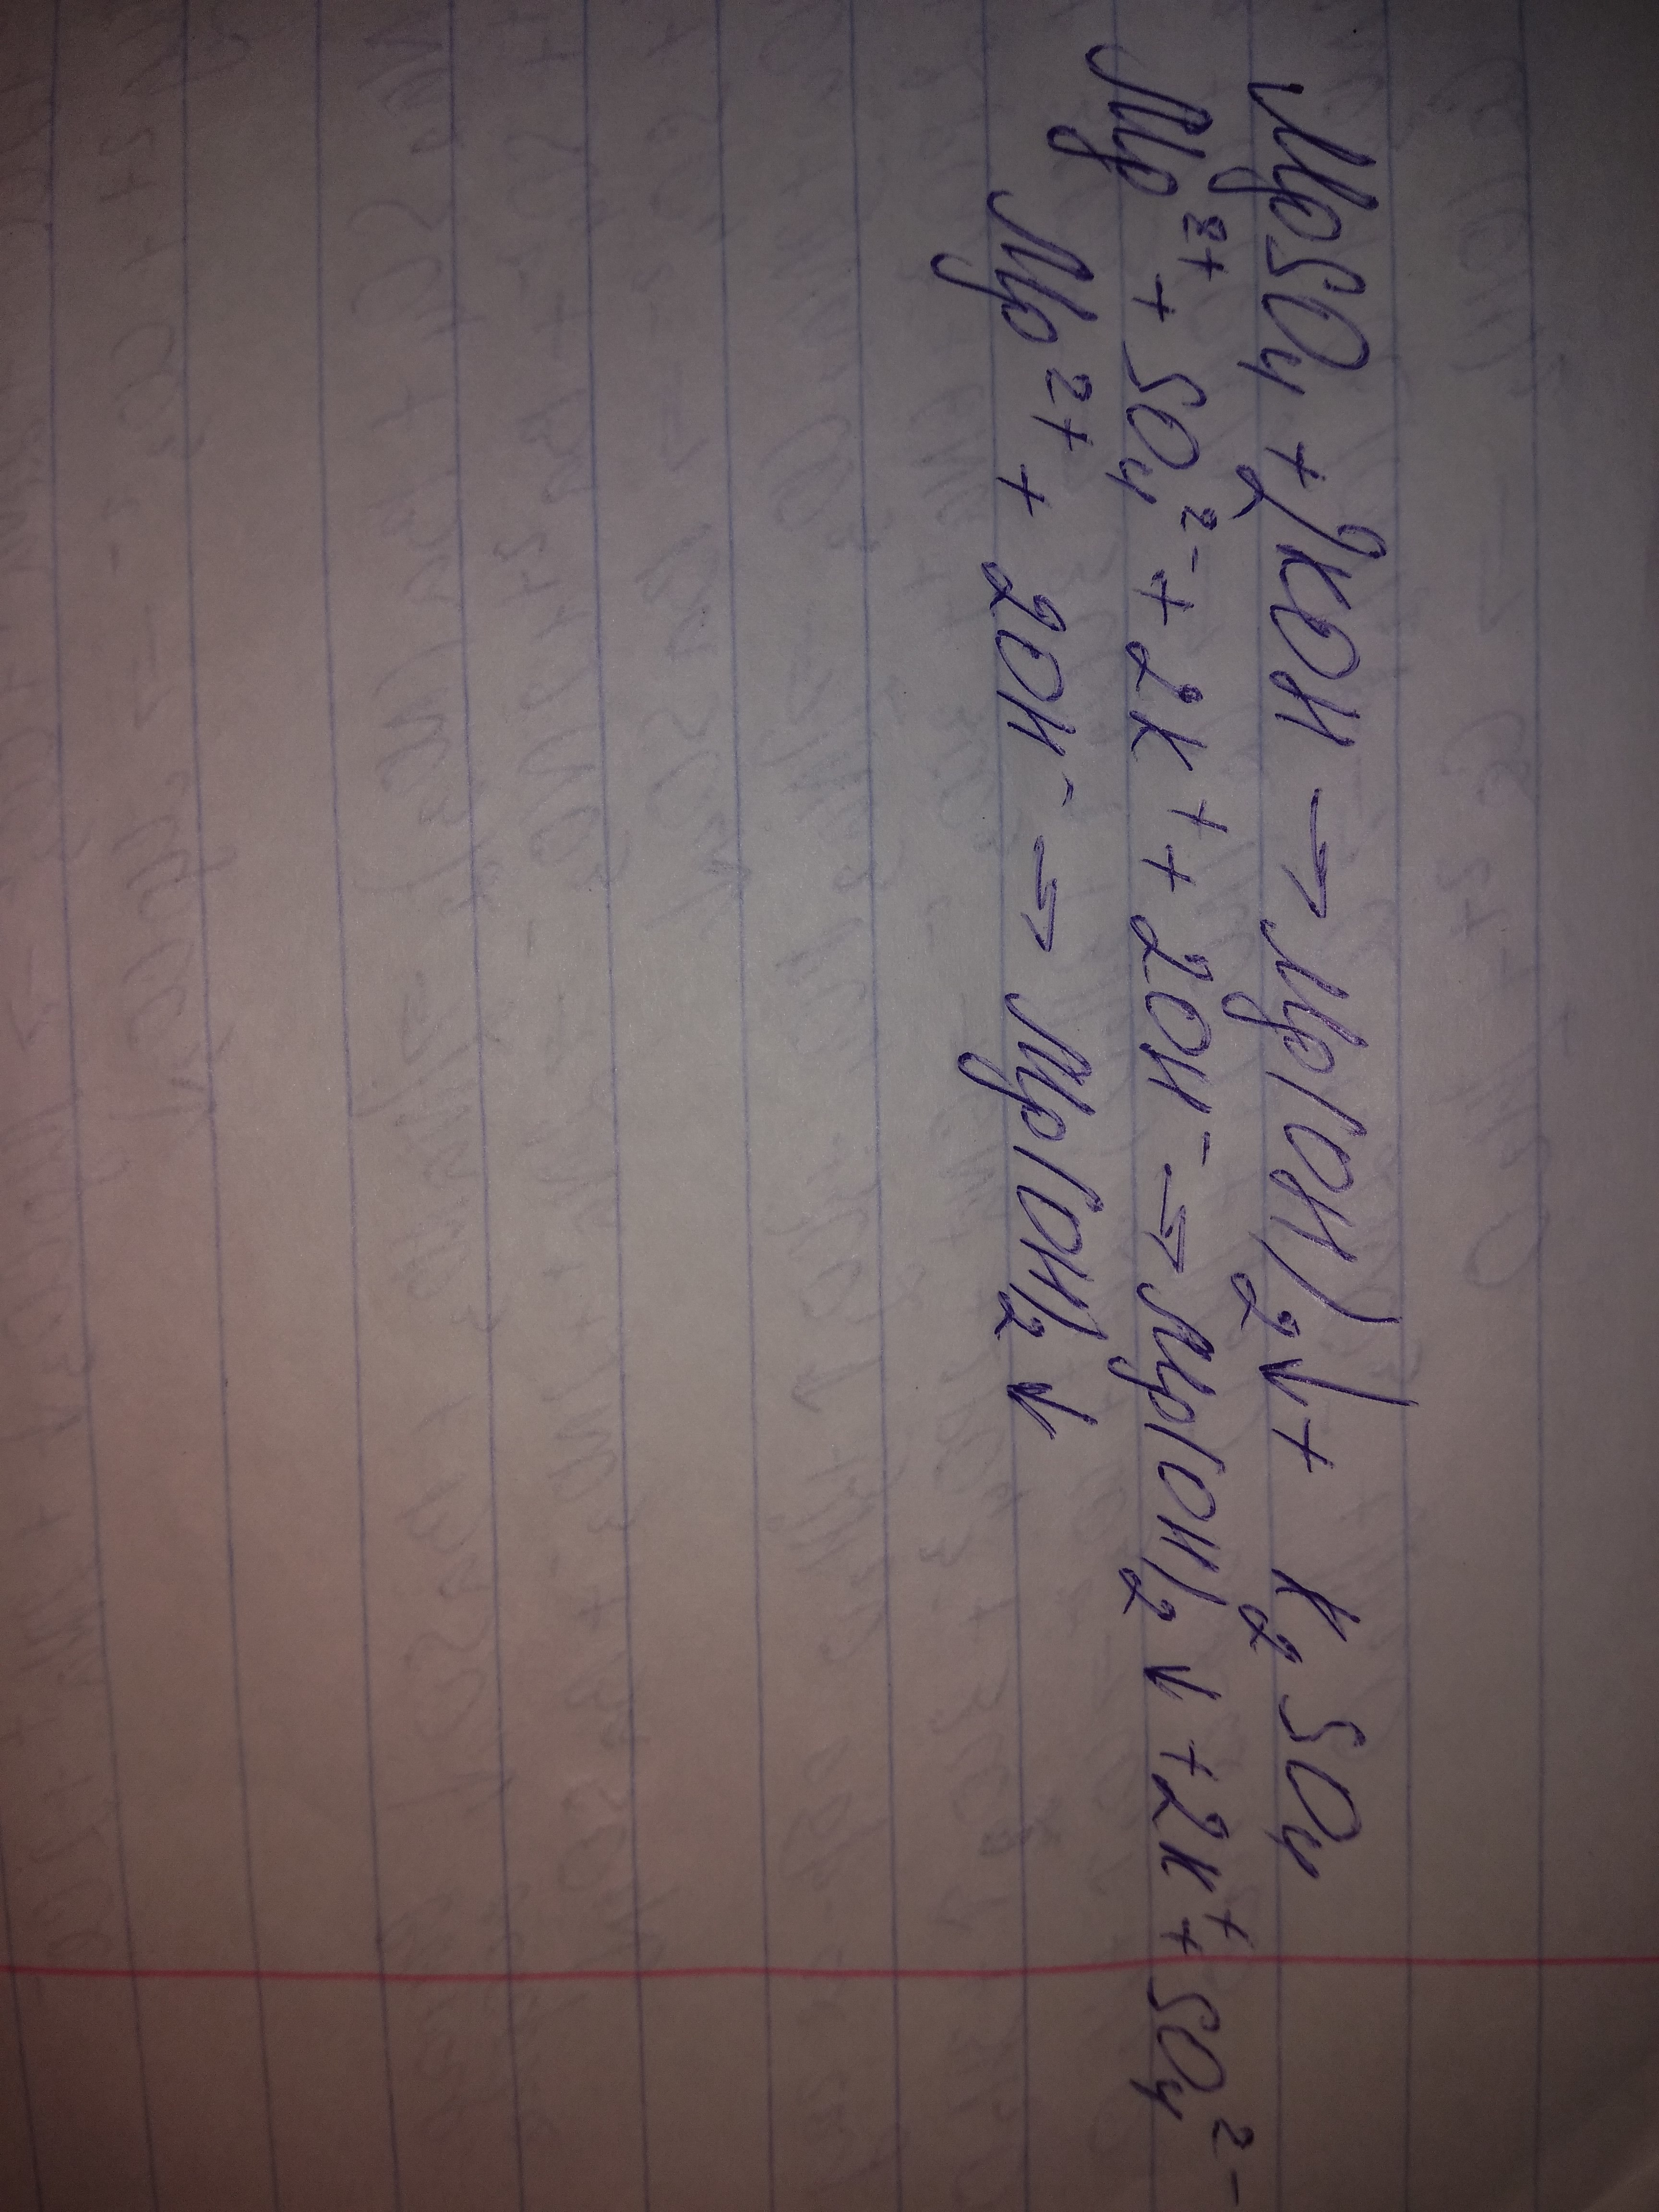 MgSO₄ + 2KOH → Mg(OH)₂↓ + K₂SO₄
Mg²⁺ + SO₄²⁻ + 2K⁺ + 2OH⁻ → Mg(OH)₂↓ + 2K⁺ + SO₄²⁻
Mg²⁺ + 2OH⁻ → Mg(OH)₂↓